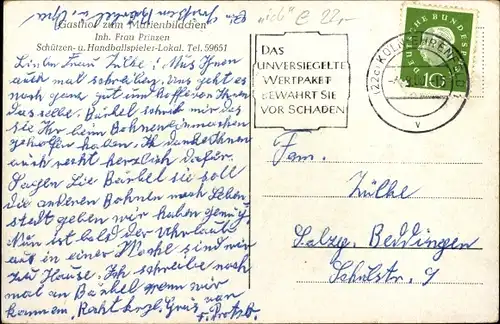 "ich" C 22,-
Gasthof zum Marienbildchen
Inh. Frau Prinzen
Schützen- u. Handballspieler-Lokal. Tel. 59651
Liebe Frau Zülke! Muß Ihnen
auch mal schreiben. Uns geht es
noch ganz gut und hoffe von Ihnen
dasselbe. Bärbel schreibt mir daß
sie Ihr beim Bohneneinmachen
geholfen haben. Ich danke Ihnen
auch recht herzlich dafür.
Sagen Sie Bärbel sie soll
die anderen Bohnen nach Leben-
stedt geben wir haben genug.
Nun ist bald der Uhrlaub
aus in einer Woche sind wir
zu Hause. Ich schreibe noch
mal an Bärbel wenn wir
kommen. Recht herzl. Grüs von
DAS
UNVERSIEGELTE
WERTPAKET
BEWAHRT SIE
VOR SCHADEN
(22c) KÖLN-EHRENFELD
V
DEUTSCHE BUNDESPOST
10
Fam.
Zülke
Salzg. Beddingen
Schulstr. 9